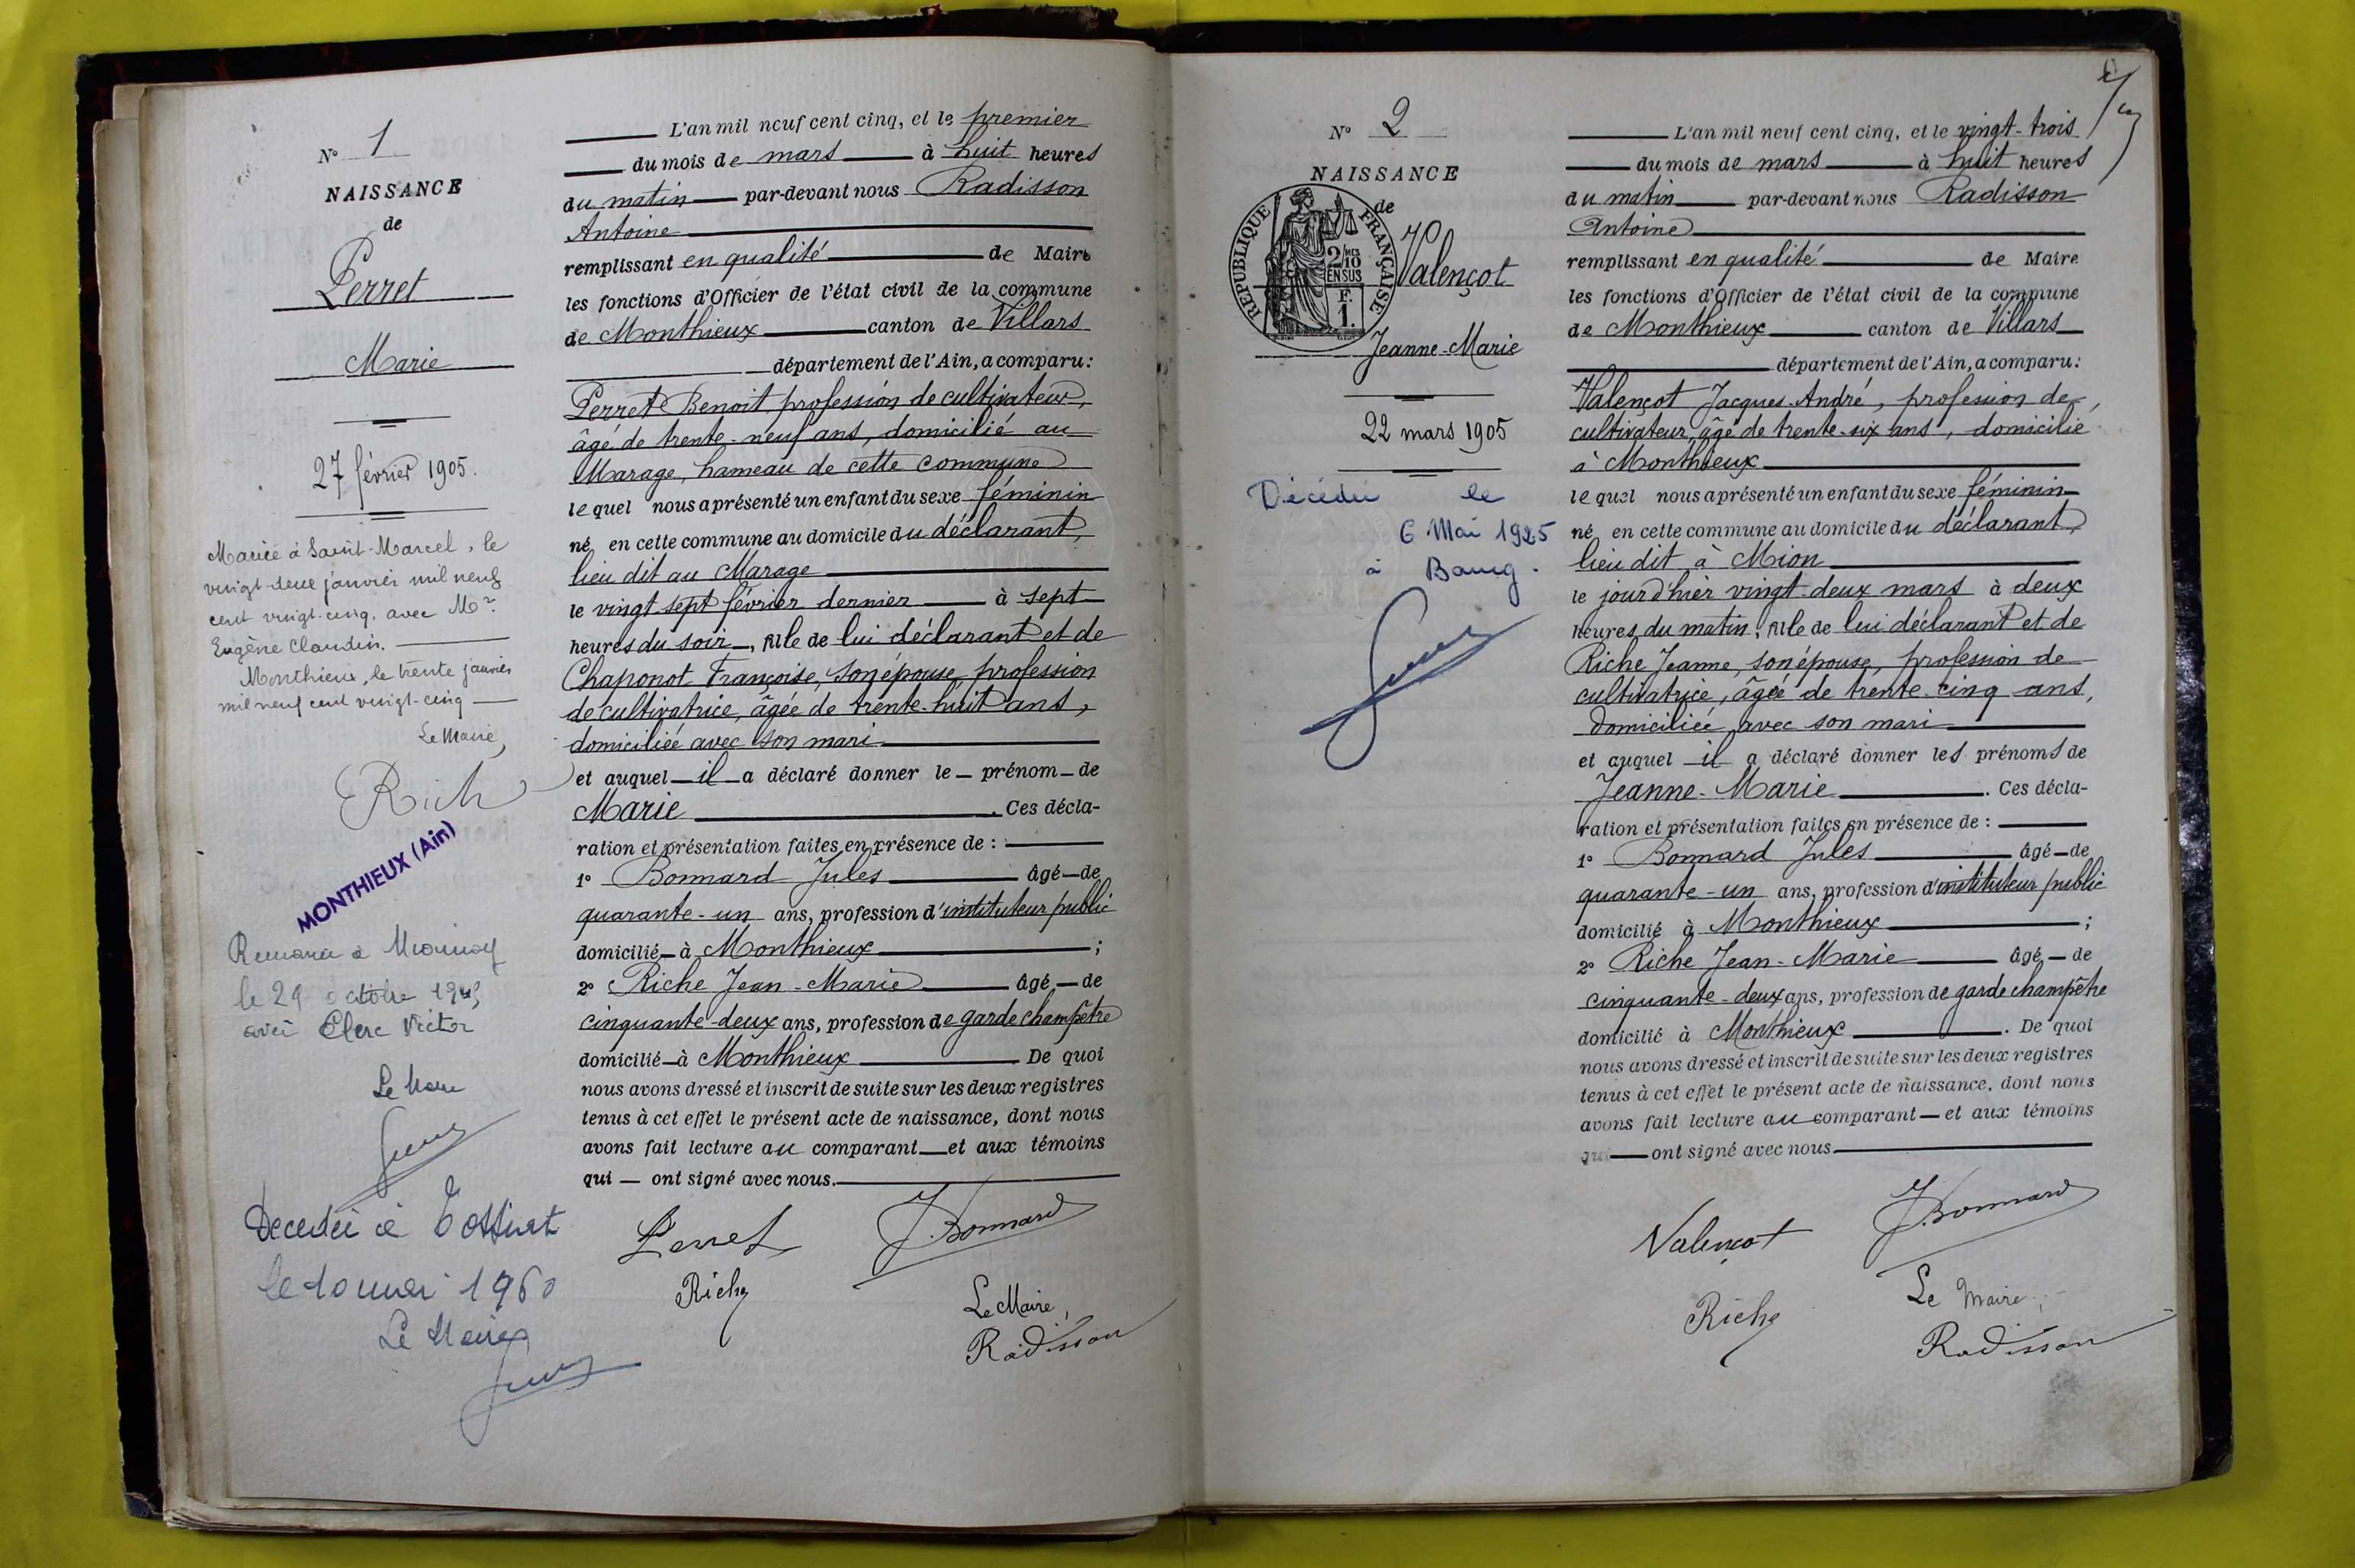 N° 1
NAISSANCE
de
Perret
Marie
27 février 1905.
Mariée à Saint-Marcel, le
vingt-deux janvier mil neuf
cent vingt-cinq, avec Mr.
Eugène Claudin.
Monthieux, le trente janvier
mil neuf cent vingt-cinq
Le Maire,
Rich
MONTHIEUX (Ain)
Remariée à Mionnay
le 29 octobre
avec Clerc Victor
Le Maire
Décédée à
le 10 mai 1960
Le Maire
L'an mil neuf cent cinq, et le premier
du mois de mars à huit heures
du matin par-devant nous Radisson
Antoine
remplissant en qualité de Maire
les fonctions d'Officier de l'état civil de la commune
de Monthieux canton de Villars
département de l'Ain, a comparu :
Perret Benoit, profession de cultivateur,
âgé de trente-neuf ans, domicilié au
Marage, hameau de cette commune
lequel nous a présenté un enfant du sexe féminin
né en cette commune au domicile du déclarant,
lieu dit au Marage
le vingt sept février dernier à sept
heures du soir, fille de lui déclarant et de
Chaponot Françoise, son épouse, profession
de cultivatrice, âgée de trente-huit ans,
domiciliée avec son mari
et auquel il a déclaré donner le prénom de
Marie. Ces décla-
ration et présentation faites en présence de :
1° Bonnard Jules âgé de
quarante-un ans, profession d'instituteur public
domicilié à Monthieux ;
2° Riche Jean-Marie âgé de
cinquante-deux ans, profession de garde champêtre
domicilié à Monthieux De quoi
nous avons dressé et inscrit de suite sur les deux registres
tenus à cet effet le présent acte de naissance, dont nous
avons fait lecture au comparant et aux témoins
qui ont signé avec nous.
Perret J. Bonnard
Riche Le Maire,
Radisson
N° 2
NAISSANCE
de
REPUBLIQUE FRANÇAISE
2/10 MES
EN SUS
F.
1.
Valençot
Jeanne-Marie
22 mars 1905
Décédée le
6 Mai 1925
à Bourg.
L'an mil neuf cent cinq, et le vingt-trois
du mois de mars à huit heures
du matin par-devant nous Radisson
Antoine
remplissant en qualité de Maire
les fonctions d'Officier de l'état civil de la commune
de Monthieux canton de Villars
département de l'Ain, a comparu :
Valençot Jacques-André, profession de
cultivateur, âgé de trente-six ans, domicilié
à Monthieux
lequel nous a présenté un enfant du sexe féminin
né en cette commune au domicile du déclarant,
lieu dit à Mion
le jour d'hier vingt-deux mars à deux
heures du matin, fille de lui déclarant et de
Riche Jeanne, son épouse, profession de
cultivatrice, âgée de trente-cinq ans,
domiciliée avec son mari
et auquel il a déclaré donner les prénoms de
Jeanne-Marie. Ces décla-
ration et présentation faites en présence de :
1° Bonnard Jules âgé de
quarante-un ans, profession d'instituteur public
domicilié à Monthieux ;
2° Riche Jean-Marie âgé de
cinquante-deux ans, profession de garde champêtre
domicilié à Monthieux. De quoi
nous avons dressé et inscrit de suite sur les deux registres
tenus à cet effet le présent acte de naissance, dont nous
avons fait lecture au comparant et aux témoins
qui ont signé avec nous.
Valençot J. Bonnard
Riche Le Maire,
Radisson